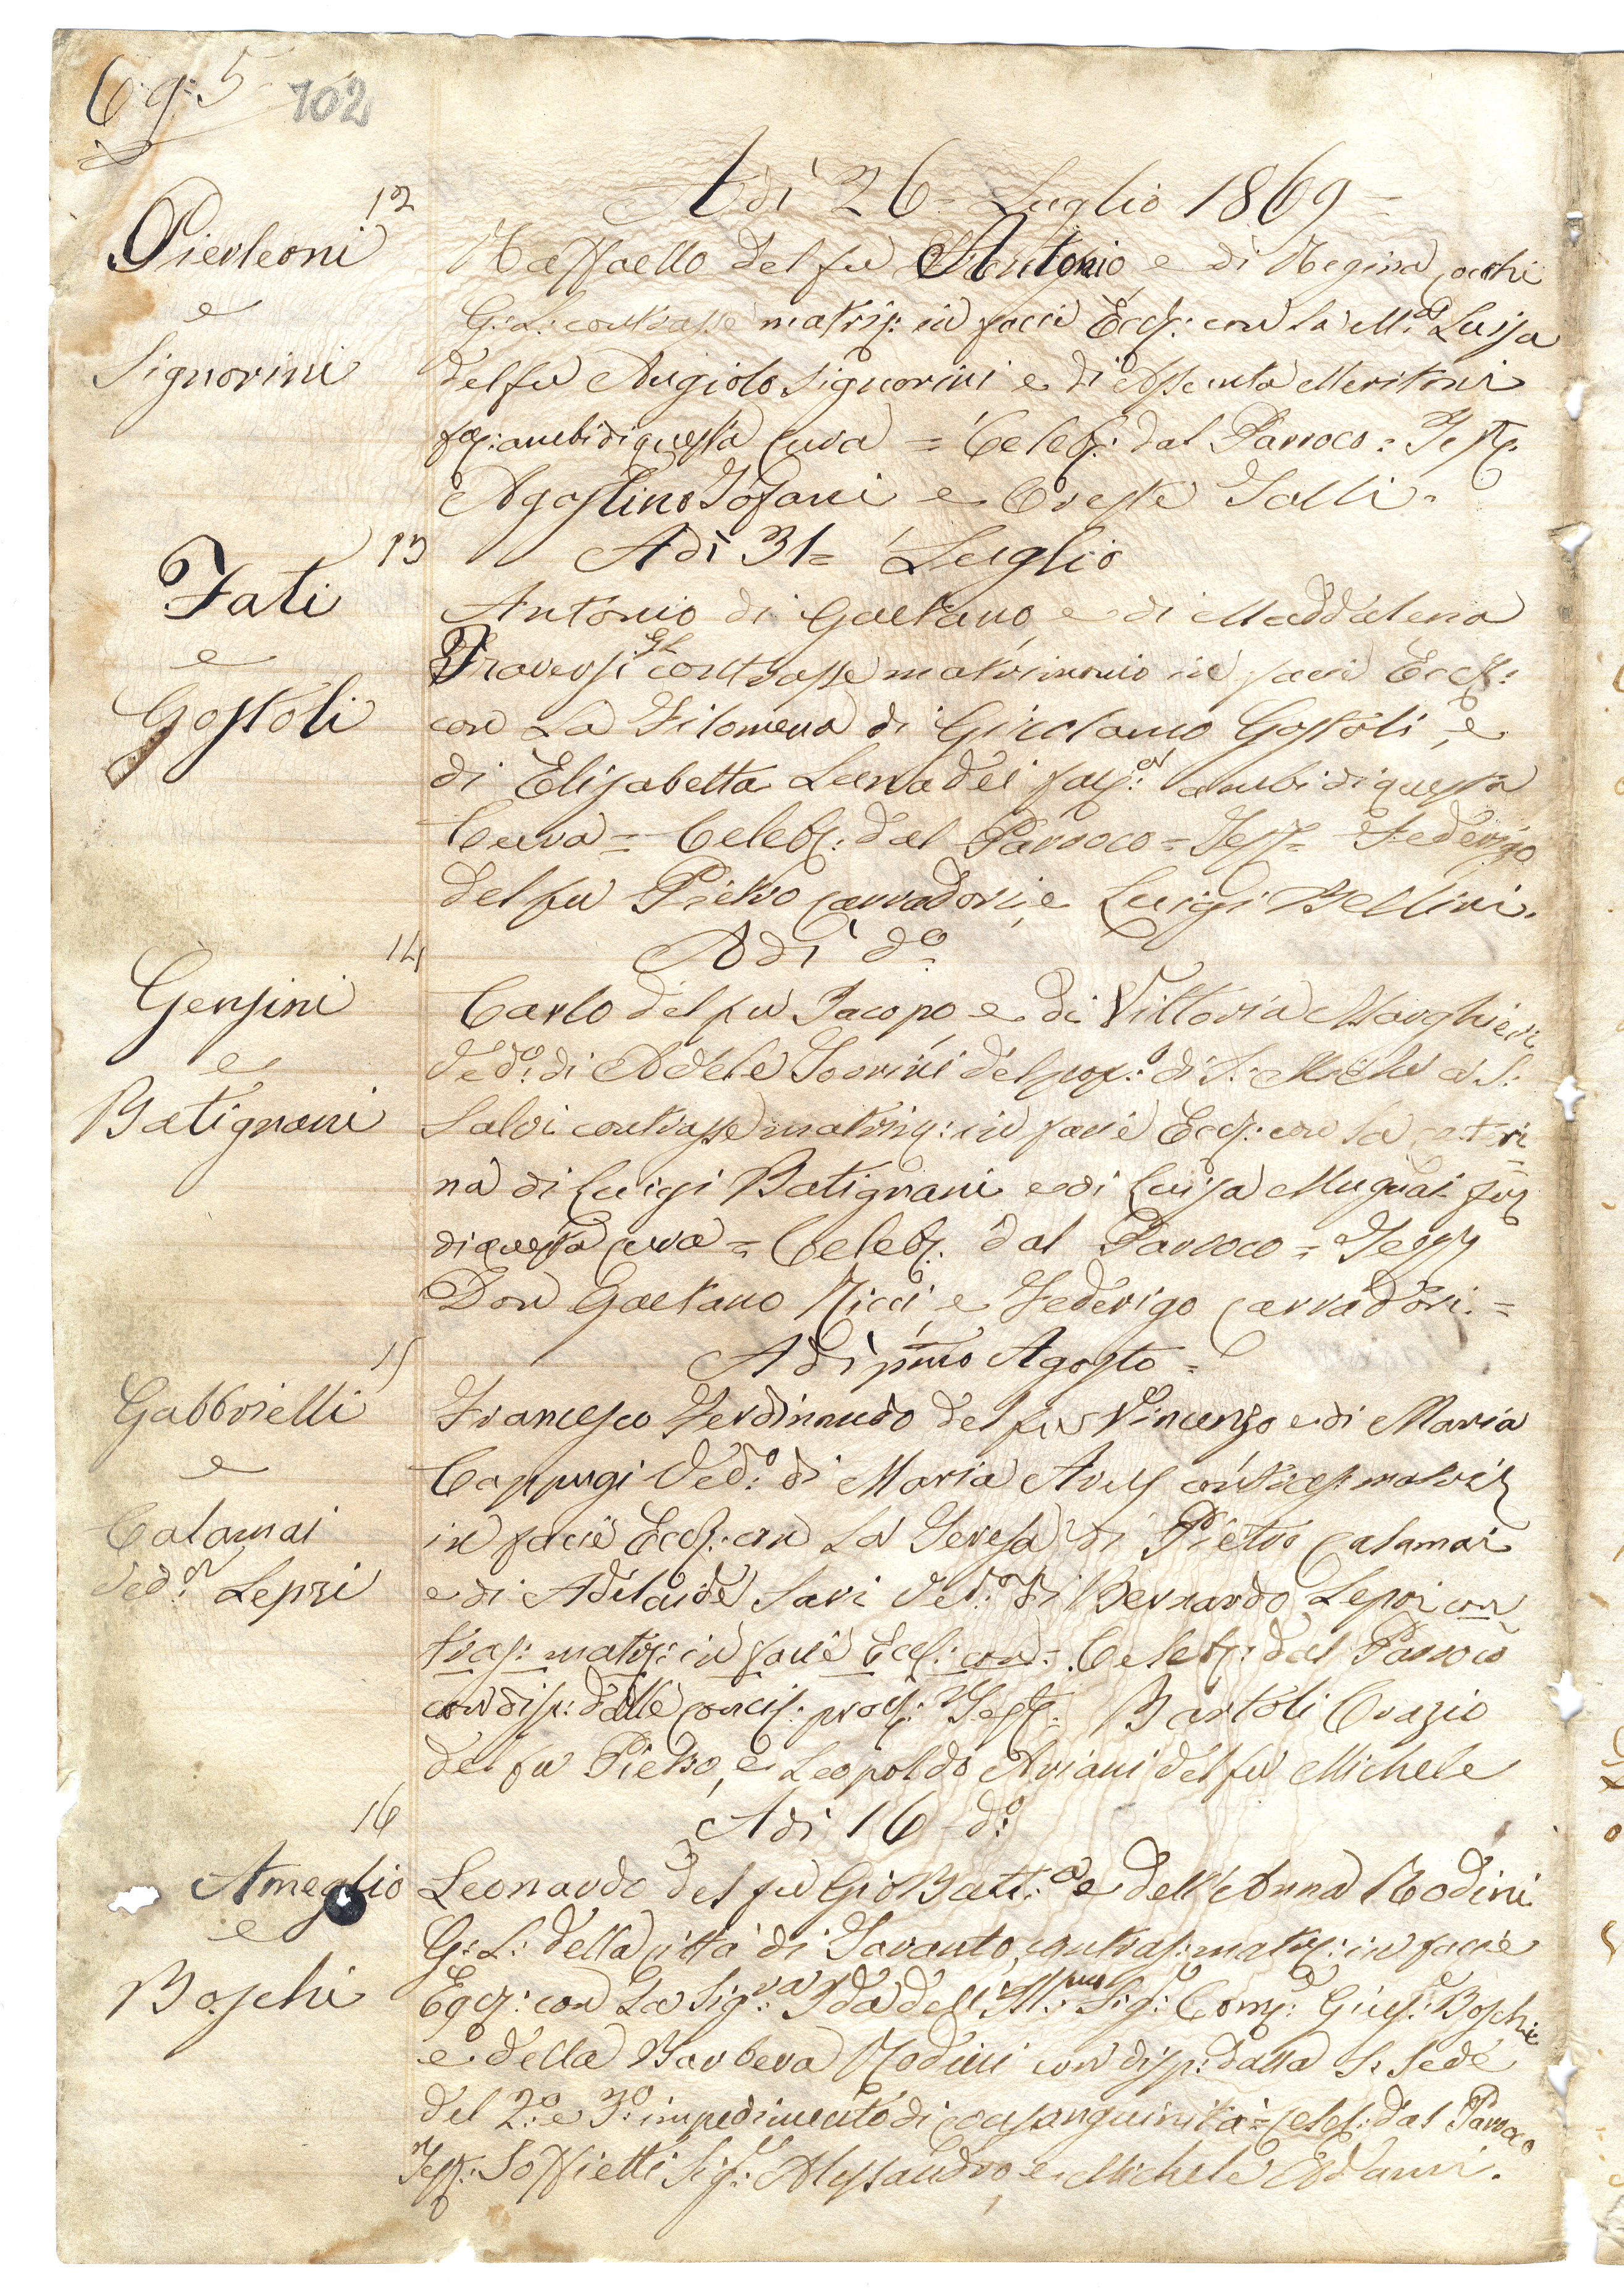 C. 9. 5 102
Adì 26 = Luglio 1869 =
12
Pierleoni
e
Signorini
Raffaello del fu Antonio, e di Regina Cocchi
G: L: contrasse matrig: in facie Eccl: con la M.a Luisa
del fu Angiolo Signorini e di Assunta Meritoni
fa: ambi di questa Cura = Celeb: dal Parroco = Test:
Agostino Tofani e Oreste Galli =
13
Adì 31 = Luglio
Fati
e
Gostoli
Antonio di Gaetano, e di Maddalena
Traversi GL contrasse matrimonio in facie Eccl:
con La Filomena di Girolamo Gostoli, e
di Elisabetta Lunadei fa: ambi di questa
Cura = Celeb: dal Parroco = Test = Federigo
del fu Pietro Carradori, e Luigi Bellini.
14
Adì do
Gensini
e
Batignani
Carlo del fu Jacopo, e di Vittoria Marghieri
Ved:o di Adele Soldini del pop:o di S: Michele a S:
Salvi contrasse matrim: in facie Eccl: con la Cateri
na di Luigi Batignani e di Luisa Mugnai fa:
di questa Cura = Celeb. dal Parroco = Test
Don Gaetano Ricci, e Federigo Carradori. =
15
Adì pmo Agosto =
Gabbrielli
e
Calamai
Ved:a Lepri
Francesco Ferdinando del fu Vincenzo e di Maria
Cappugi Ved:o di Maria contras: matri
in facie Eccl: con La Teresa di Pietro Calamai
e di Adelaide Savi Ved:a di Bernardo Lepri con
tras: matri: in facie Eccl: con = Celeb: dal Parroco
con disp: dalle concil: procl: Test: Bartoli Orazio
del fu Pietro, e Leopoldo Ariani del fu Michele
16
Adì 16 do:
Ameglio
e
Boschi
Leonardo del fu Gio Batt:a e dell'Anna Rodini
G: L: della Città di Taranto, contras: matri: in facie
Eccl: con La Sig:ra Ida dell'Ill:mo Sig: Com: Gius: Boschi
e della Barbera Rodini con disp: dalla S: Sede
del 2:o e 3:o impedimento di consanguinità = Celeb: dal Parroco
Test: Soffietti Sig: Alessandro, e Michele